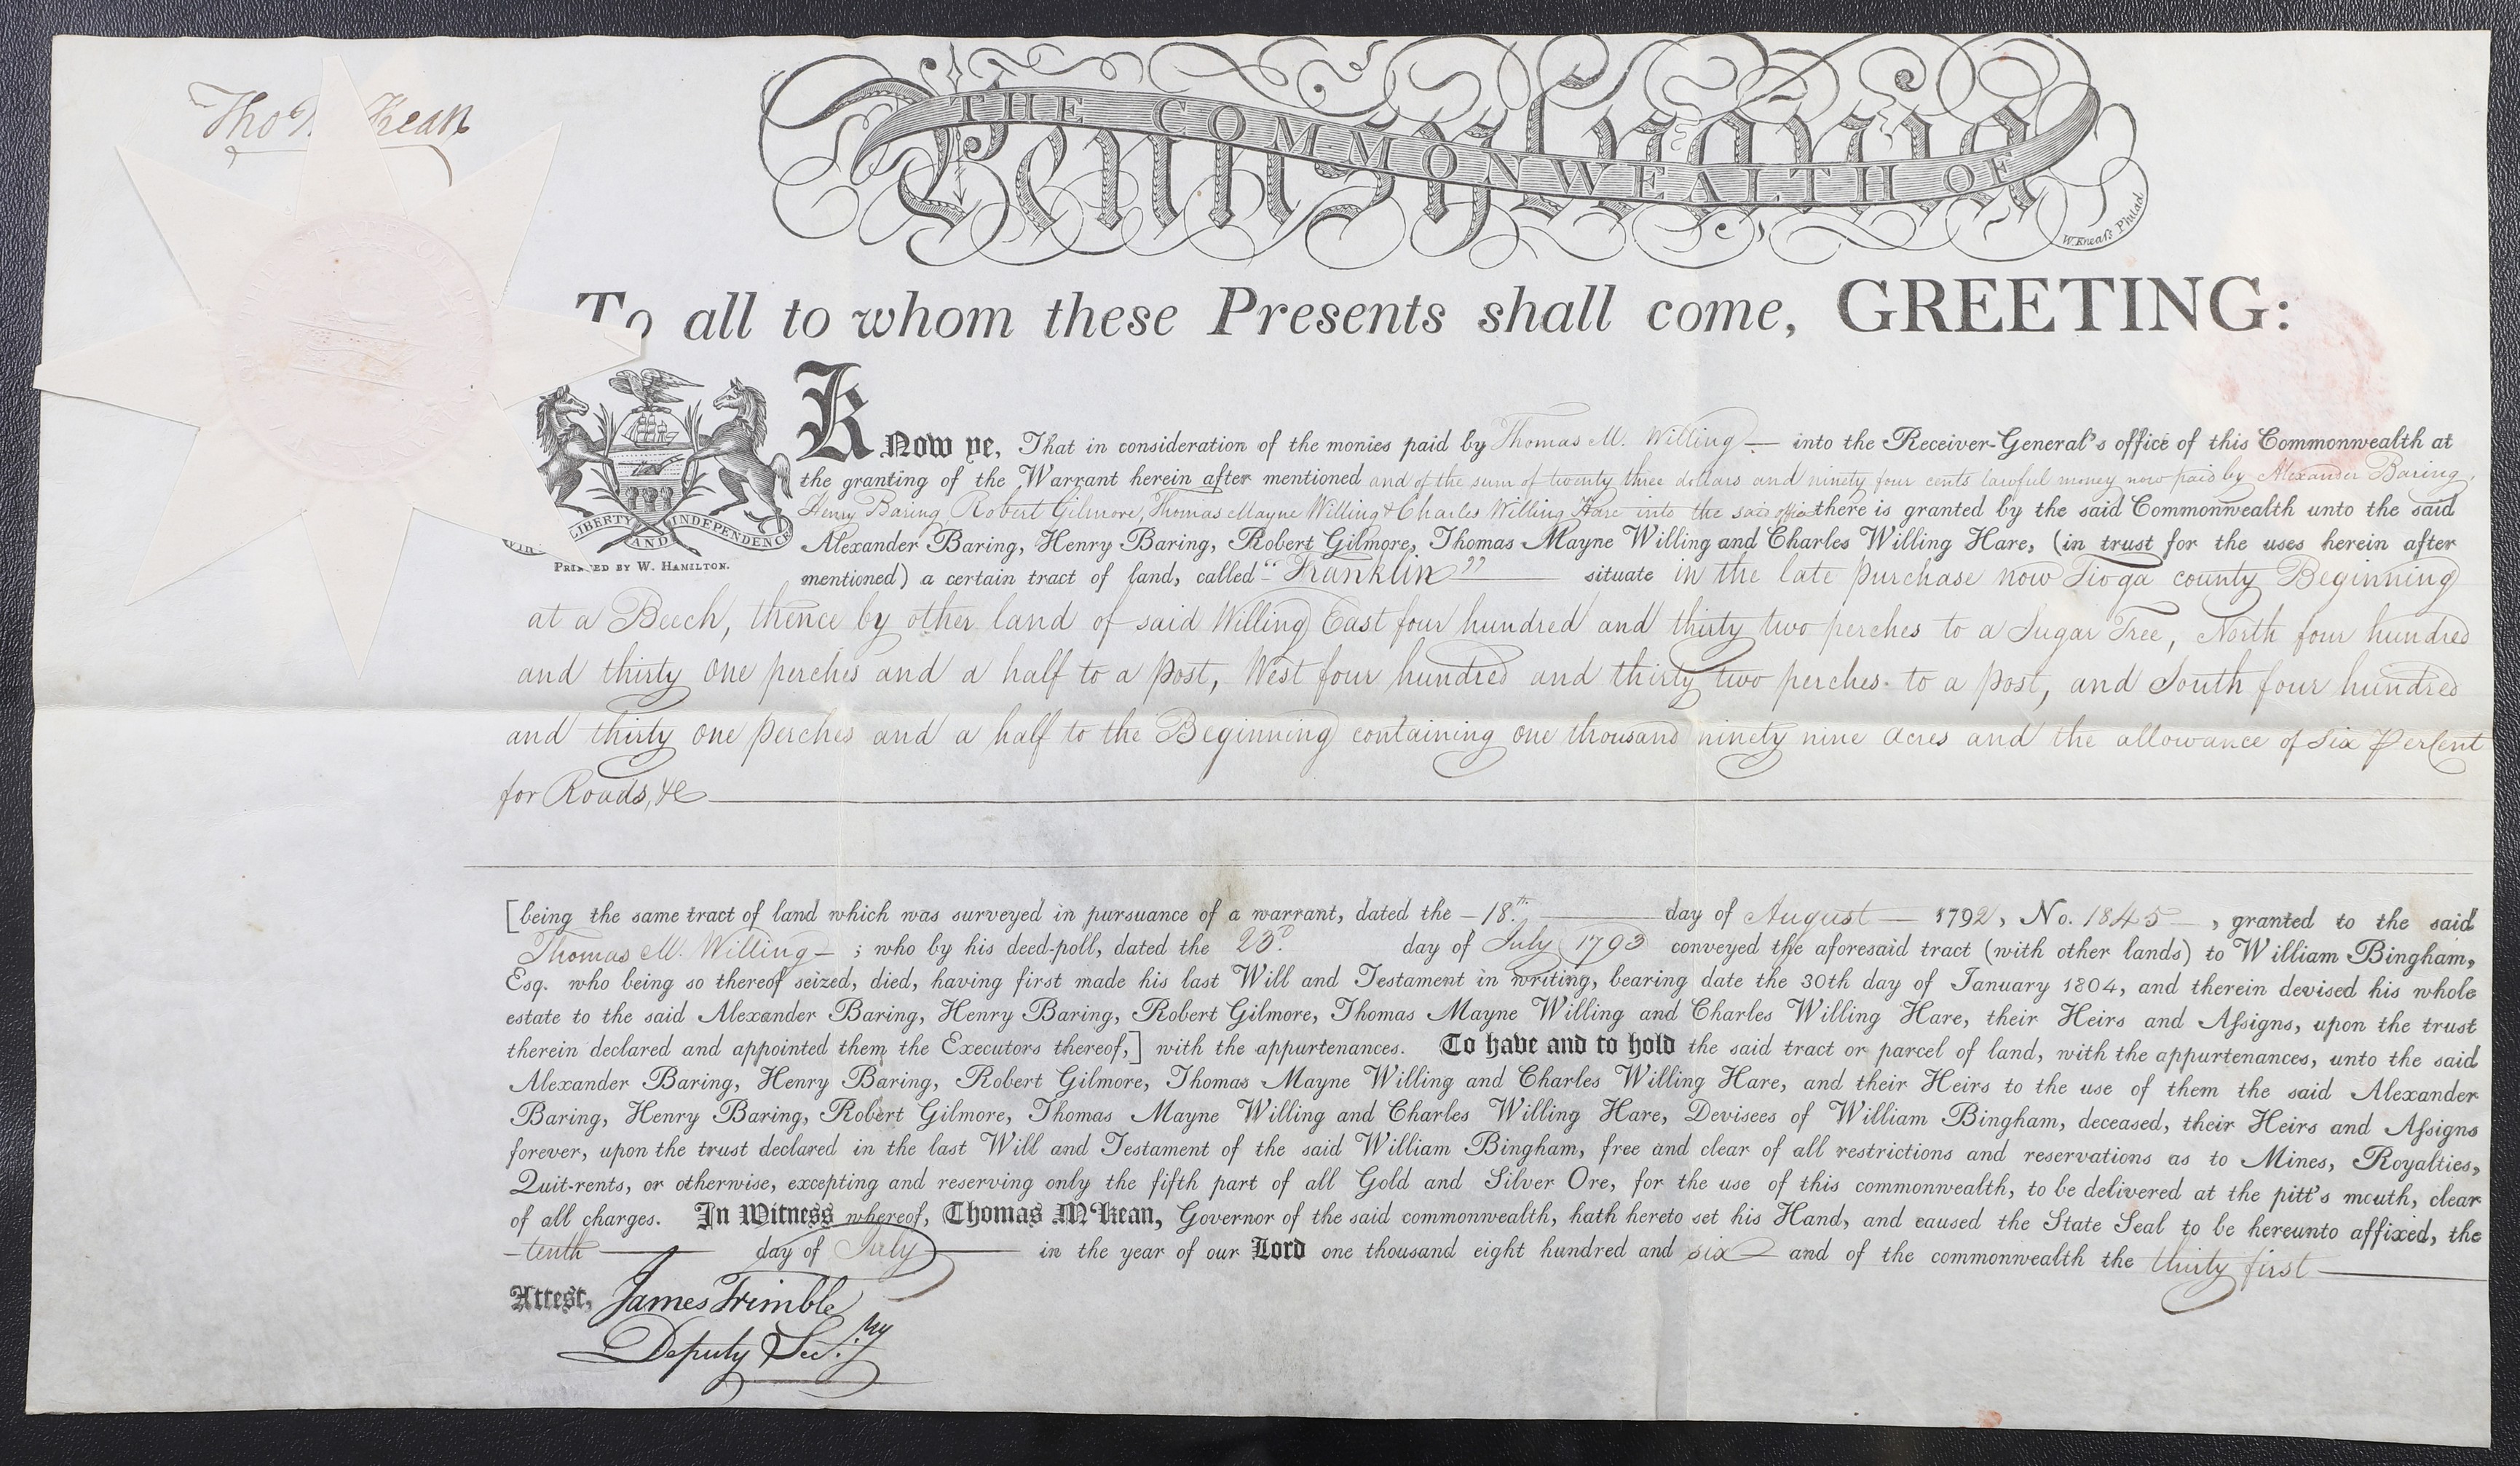 Tho M Kean
THE COMMONWEALTH OF
Pennsylvania
W. Kneaſs Philad
To all to whom these Presents shall come, GREETING:
LIBERTY AND INDEPENDENCE
PRINTED BY W. HAMILTON.
Know ye, That in consideration of the monies paid by Thomas M. Willing — into the Receiver-General's office of this Commonwealth at
the granting of the Warrant herein after mentioned and of the sum of twenty three dollars and ninety four cents lawful money now paid by Alexander Baring,
Henry Baring, Robert Gilmore, Thomas Mayne Willing & Charles Willing Hare into the said office there is granted by the said Commonwealth unto the said
Alexander Baring, Henry Baring, Robert Gilmore, Thomas Mayne Willing and Charles Willing Hare, (in trust for the uses herein after
mentioned) a certain tract of land, called "Franklin" situate in the late purchase now Tioga county Beginning
at a Beech, thence by other land of said Willing East four hundred and thirty two perches to a Sugar Tree, North four hundred
and thirty one perches and a half to a post, West four hundred and thirty two perches to a post, and South four hundred
and thirty one perches and a half to the Beginning containing one thousand ninety nine acres and the allowance of Six PerCent
for Roads, &c
[being the same tract of land which was surveyed in pursuance of a warrant, dated the 18th day of August 1792, No. 1845, granted to the said
Thomas M. Willing ; who by his deed-poll, dated the 23d day of July 1793 conveyed the aforesaid tract (with other lands) to William Bingham,
Esq. who being so thereof seized, died, having first made his last Will and Testament in writing, bearing date the 30th day of January 1804, and therein devised his whole
estate to the said Alexander Baring, Henry Baring, Robert Gilmore, Thomas Mayne Willing and Charles Willing Hare, their Heirs and Aſsigns, upon the trust
therein declared and appointed them the Executors thereof,] with the appurtenances. To have and to hold the said tract or parcel of land, with the appurtenances, unto the said
Alexander Baring, Henry Baring, Robert Gilmore, Thomas Mayne Willing and Charles Willing Hare, and their Heirs to the use of them the said Alexander
Baring, Henry Baring, Robert Gilmore, Thomas Mayne Willing and Charles Willing Hare, Devisees of William Bingham, deceased, their Heirs and Aſsigns
forever, upon the trust declared in the last Will and Testament of the said William Bingham, free and clear of all restrictions and reservations as to Mines, Royalties,
Quit-rents, or otherwise, excepting and reserving only the fifth part of all Gold and Silver Ore, for the use of this commonwealth, to be delivered at the pitt's mouth, clear
of all charges. In Witness whereof, Thomas M'Kean, Governor of the said commonwealth, hath hereto set his Hand, and caused the State Seal to be hereunto affixed, the
tenth day of July in the year of our Lord one thousand eight hundred and six and of the commonwealth the thirty first
Attest, James Trimble
Deputy Secry